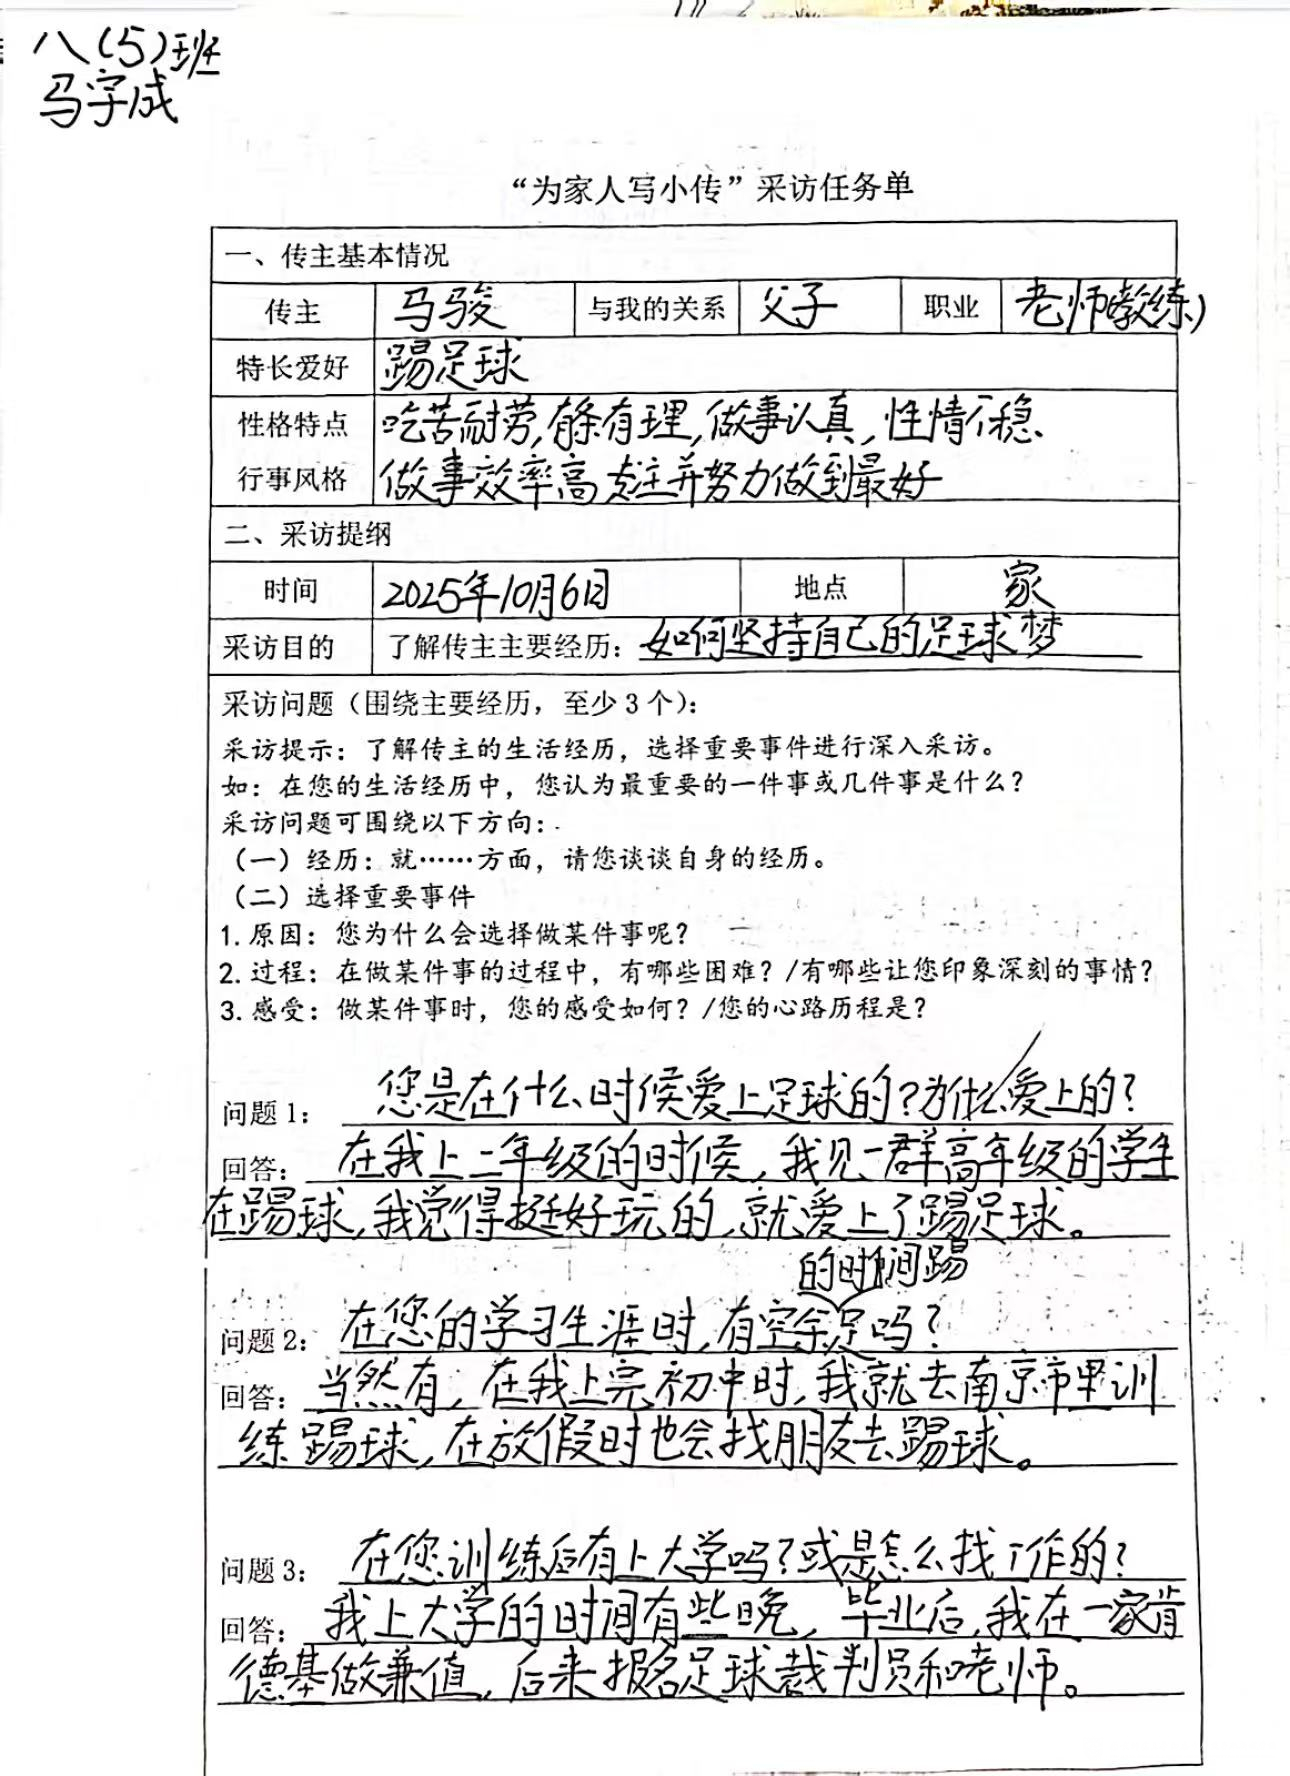 八(5)班
马宇成
“为家人写小传”采访任务单
一、传主基本情况
传主 马骏 与我的关系 父子 职业 老师(教练)
特长爱好 踢足球
性格特点 吃苦耐劳,有条有理,做事认真,性情不稳、
行事风格 做事效率高专注并努力做到最好
二、采访提纲
时间 2025年10月6日 地点 家
采访目的 了解传主主要经历：如何坚持自己的足球梦
采访问题（围绕主要经历，至少3个）：
采访提示：了解传主的生活经历，选择重要事件进行深入采访。
如：在您的生活经历中，您认为最重要的一件事或几件事是什么？
采访问题可围绕以下方向：
（一）经历：就……方面，请您谈谈自身的经历。
（二）选择重要事件
1. 原因：您为什么会选择做某件事呢？
2. 过程：在做某件事的过程中，有哪些困难？/有哪些让您印象深刻的事情？
3. 感受：做某件事时，您的感受如何？/您的心路历程是？
问题1： 您是在什么时候爱上足球的?为什么爱上的?
回答： 在我上二年级的时候,我见一群高年级的学生
在踢球,我觉得挺好玩的,就爱上了踢足球。
的时间踢
问题2： 在您的学习生涯时,有空余足吗?
回答： 当然有,在我上完初中时,我就去南京市里训
练踢球,在放假时也会找朋友去踢球。
问题3： 在您训练后有上大学吗?或是怎么找工作的?
回答： 我上大学的时间有些晚,毕业后,我在一家肯
德基做兼值,后来报名足球裁判员和老师。